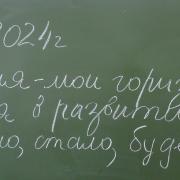 2024г
ия - мои гориз
а в развитии
ло, стало, буде